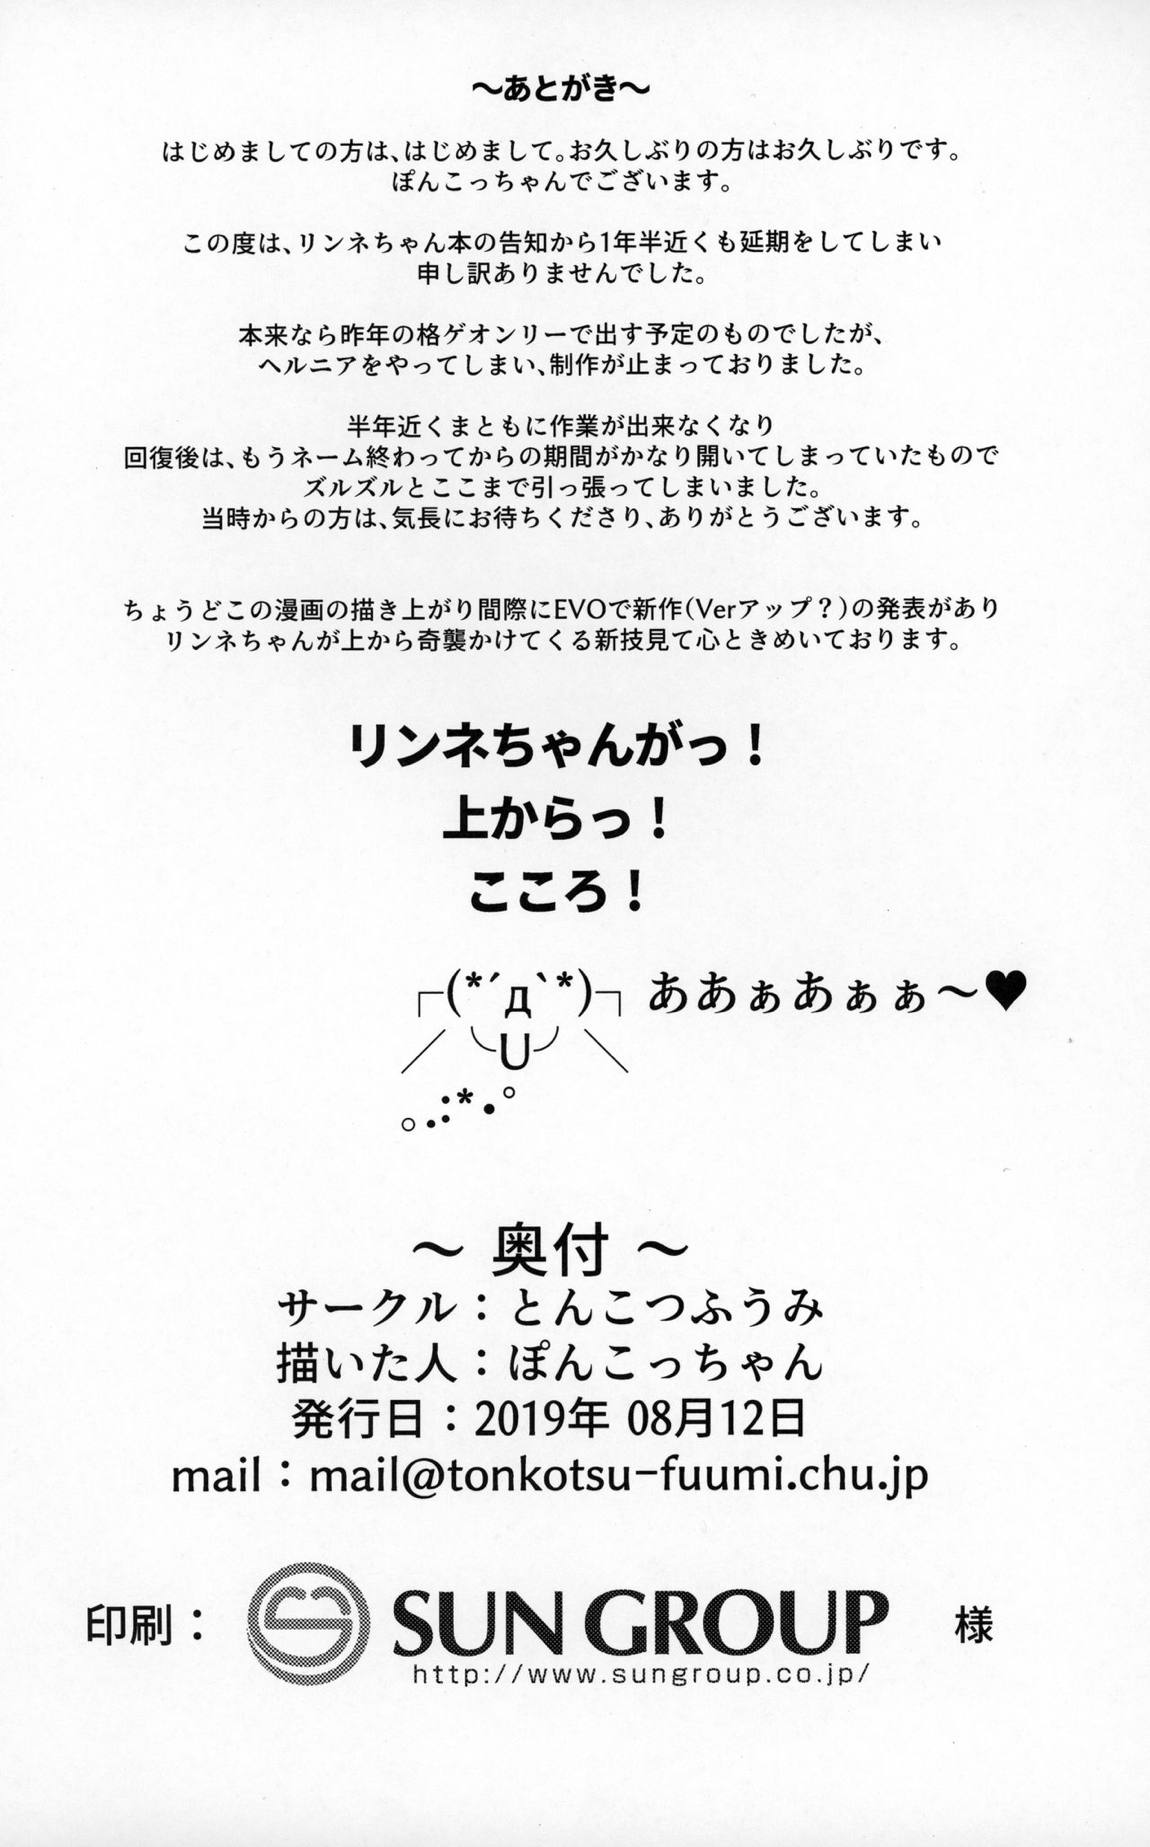 ～あとがき～
はじめましての方は、はじめまして。お久しぶりの方はお久しぶりです。
ぽんこっちゃんでございます。
この度は、リンネちゃん本の告知から1年半近くも延期をしてしまい
申し訳ありませんでした。
本来なら昨年の格ゲオンリーで出す予定のものでしたが、
ヘルニアをやってしまい、制作が止まっておりました。
半年近くまともに作業が出来なくなり
回復後は、もうネーム終わってからの期間がかなり開いてしまっていたもので
ズルズルとここまで引っ張ってしまいました。
当時からの方は、気長にお待ちくださり、ありがとうございます。
ちょうどこの漫画の描き上がり間際にEVOで新作(Verアップ？)の発表があり
リンネちゃんが上から奇襲かけてくる新技見て心ときめいております。
リンネちゃんがっ！
上からっ！
こころ！
┌(*´д`*)┐ ああぁあぁぁ～♥
／ ╰U╯ ＼
｡.:*•°
～ 奥付 ～
サークル：とんこつふうみ
描いた人：ぽんこっちゃん
発行日：2019年 08月12日
mail：mail@tonkotsu-fuumi.chu.jp
印刷： SUN GROUP 様
http://www.sungroup.co.jp/